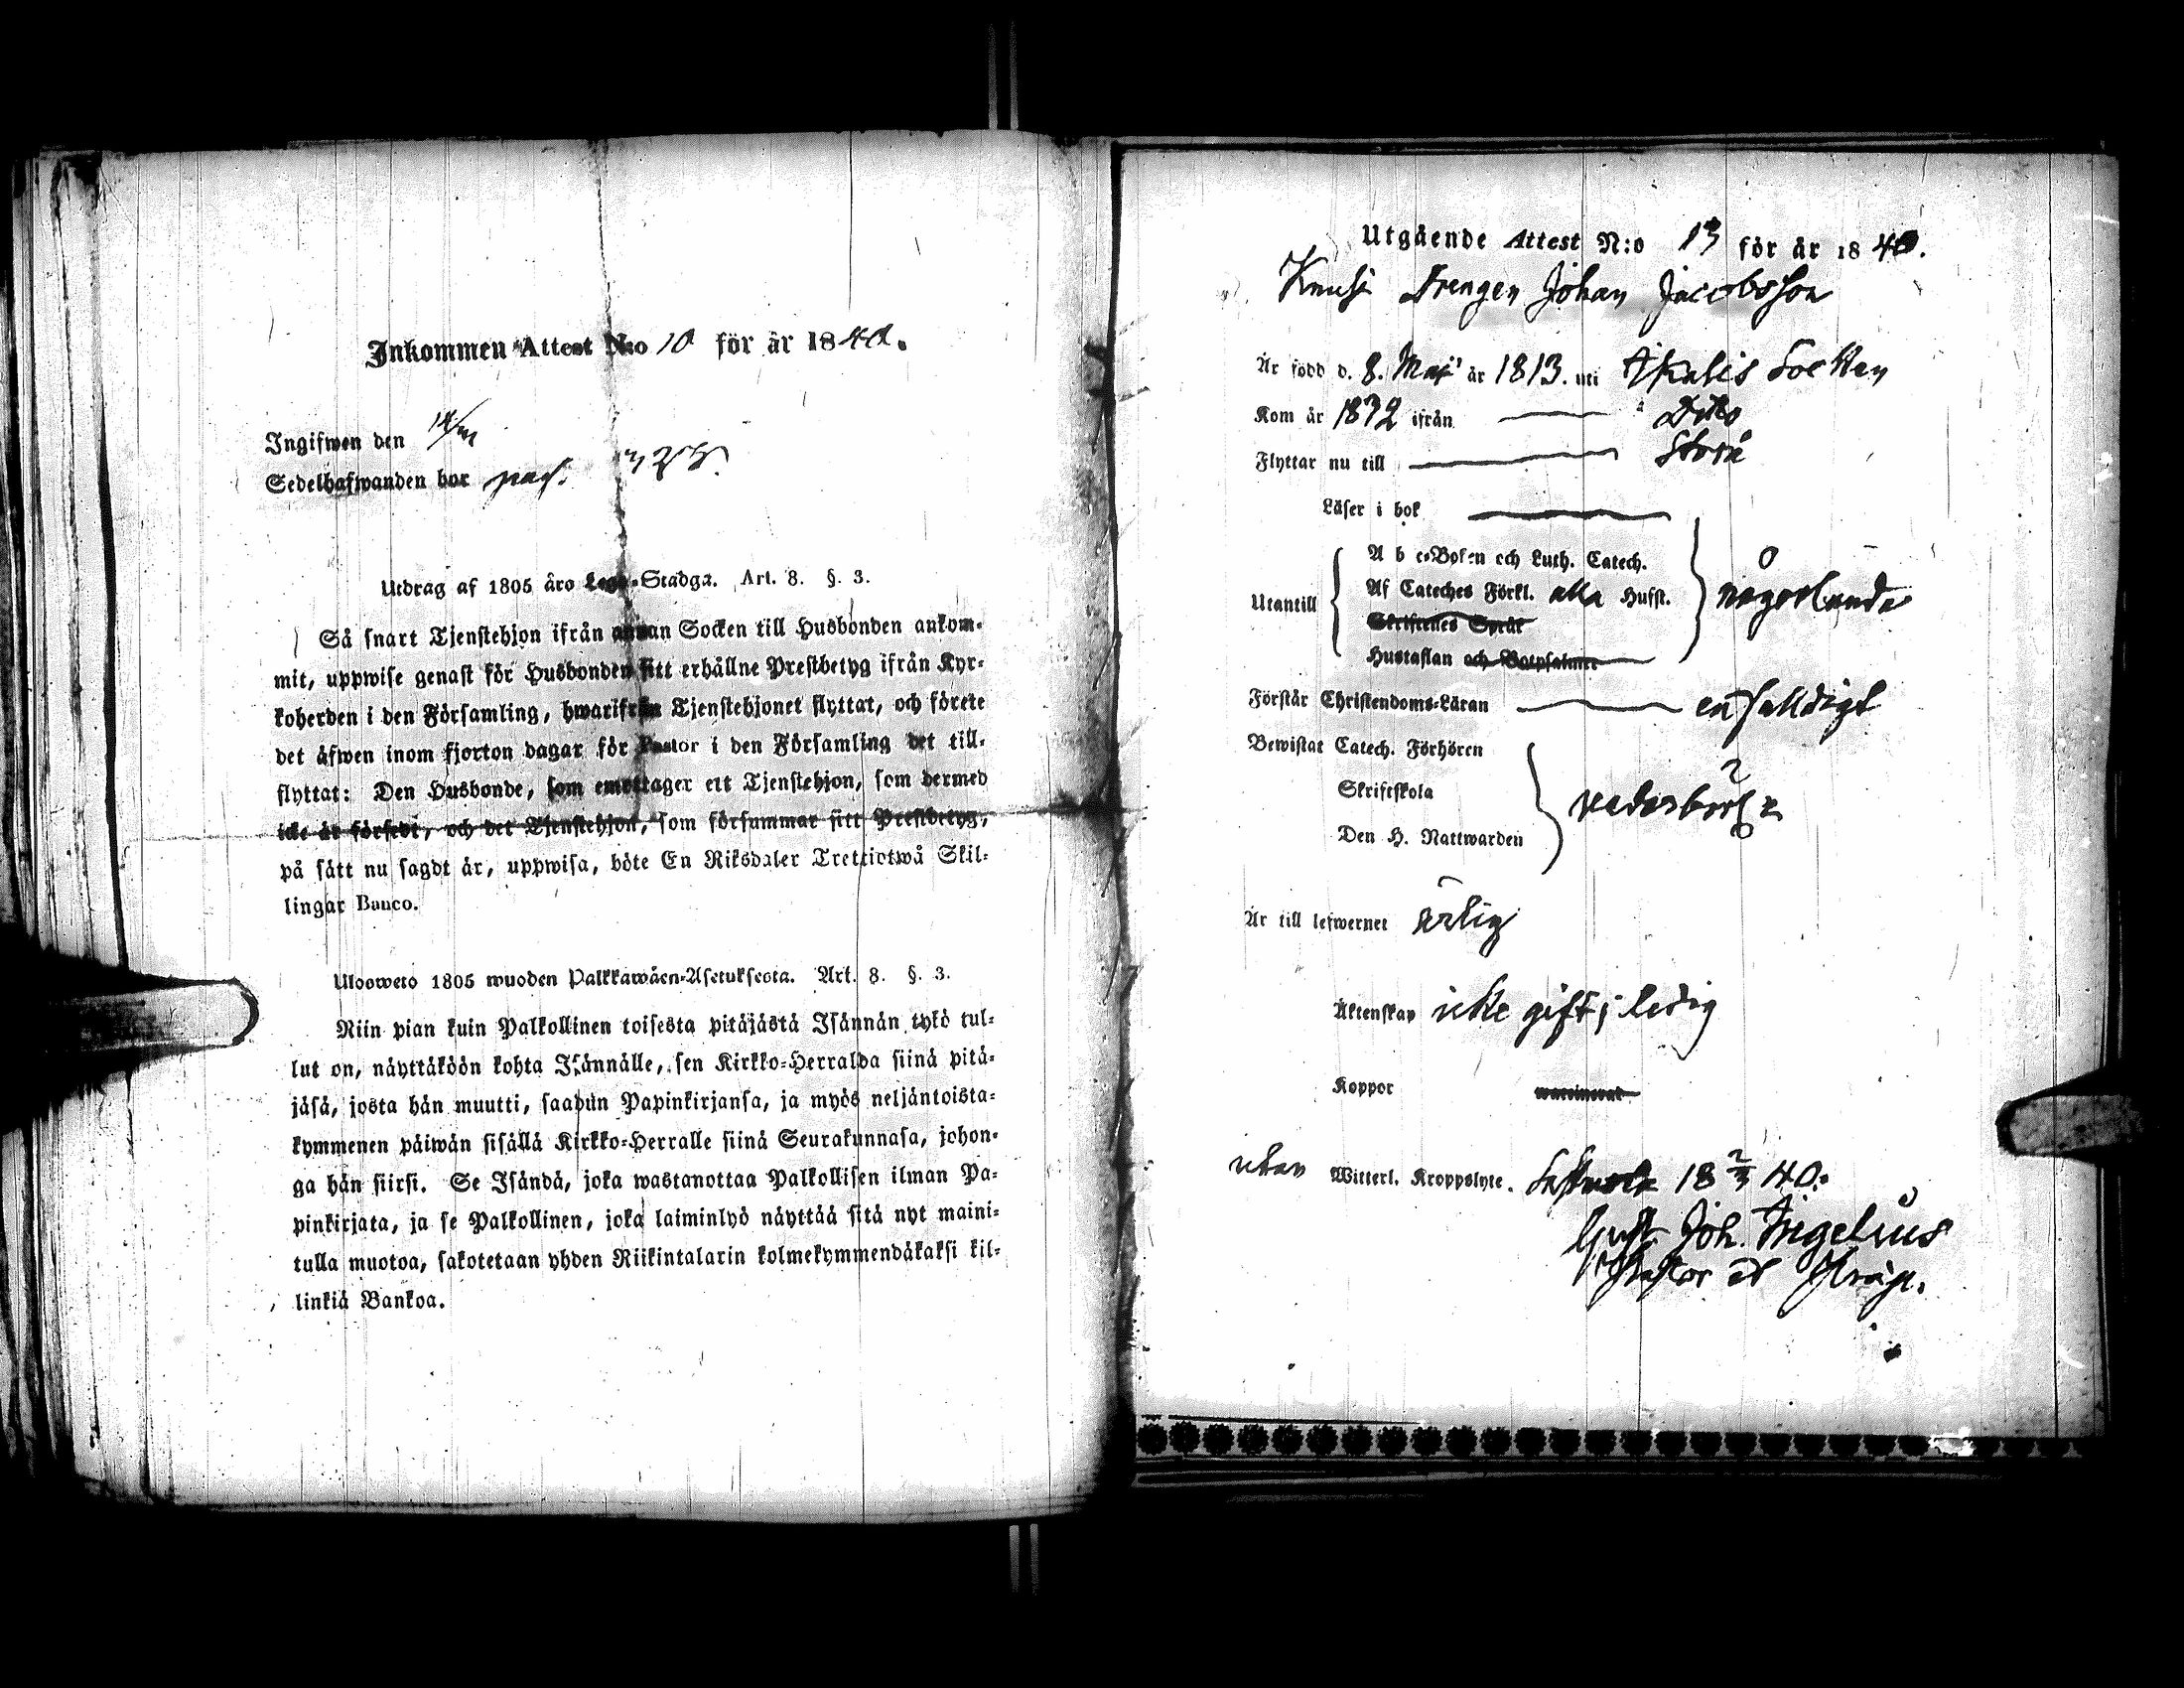 Inkommen Attest N:o 10 för är 1840.
Ingifwen den
Sedelhafwanden bor pag.
Utdrag af 1805 åro Lego-Stadga. Art. 8. §. 3.
Så snart Tjenstehjon ifrån annan Socken till Husbonden ankom-
mit, uppwise genast för Husbonden sitt erhållne Prestbetyg ifrån Kyr-
koherden i den Församling, hwarifrån Tjenstehjonet flyttat, och förete
det äfwen inom fjorton dagar för Pastor i den Församling det till-
flyttat: Den Husbonde, som emottager ett Tjenstehjon, som dermed
icke är försedt, och det Tjenstehjon, som försummar sitt Prestbetyg,
på sätt nu sagdt är, uppwisa, böte En Riksdaler Trettiotwå Skil-
lingar Banco.
Ulosweto 1805 wuoden Palkkawäen-Asetuksesta. Art. 8. §. 3.
Niin pian kuin Palkollinen toisesta pitäjästä Isännän tykö tul-
lut on, näyttäköön kohta Isännälle, sen Kirkko-Herralda siinä pitä-
jäsä, josta hän muutti, saadun Papinkirjansa, ja myös neljäntoista-
kymmenen päiwän sisällä Kirkko-Herralle siinä Seurakunnasa, johon-
ga hän siirsi. Se Isändä, joka wastanottaa Palkollisen ilman Pa-
pinkirjata, ja se Palkollinen, joka laiminlyö näyttää sitä nyt maini-
tulla muotoa, sakotetaan yhden Riikintalarin kolmekymmendäkaksi kil-
linkiä Bankoa.
Utgående Attest N:o 13 för år 1840.
Knusi Drengen Johan Jacobsson
Är född d. 8. Maji år 1813. uti Ikalis Socken
Kom år 1832 ifrån Dito
Flyttar nu till Storå
Läser i bok
A b c-Boken och Luth. Catech.
Utantill Af Cateches Förkl. alla Husst. någorlunda
Skriftenes Språk
Hustaflan och Botpsalmer
Förstår Christendoms-Läran enfaldigt
Bewistat Catech. Förhören
Skriftskola
Den H. Nattwarden
Är till lefwernet ärlig
Äktenskap icke gift; ledig
Koppor vaccinerat
utan Witterl. Kroppslyte. Sastmola 18 2/3 40.
Gust. Joh. Ingelius
Pastor et Præp.